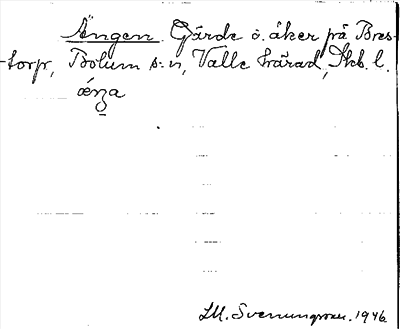 Ängen Gärde o. åker på Bres-
torp, Bolum s:n, Valle härad, Skb. l.
ǽŋa
S. M. Svenungsson. 1946